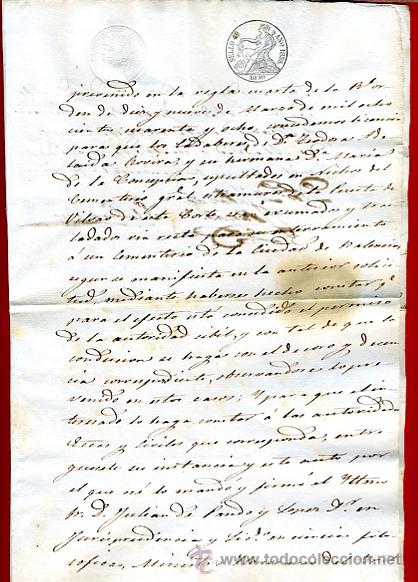 SELLO 4º AÑO 1858
40 Ms
prevenido en la regla cuarta de la Rl or
den de diez y nueve de Marzo de mil ocho
cientos cuarenta y ocho, concedemos licencia
para que los cadaberes de Dª Teodora
y su hermana Dª Maria
de la Concepcion, sepultados en nichos del
Cementerio gral. estramuros de la Puerta de
de esta Corte, sean exumados y tras
ladados via recta para su enterramiento
á un Cementerio de la Ciudad de Valencia
segun se manifiesta en la anterior solici
tud, mediante haberse hecho constar qe
para el efecto está concedido el permiso
de la autoridad cibil, y con tal de que la
conduccion se haga con el decoro y decen
cia correspondiente, observandose lo pre
venido en estos casos; Y para que el in
teresado lo haga constar á las autoridades
Eccas y Civiles que corresponda, entre
guesele su instancia y este auto por
el que asi lo mandó y firmó el Yltmo
Sr. D. Julian de Pando y Lopez Dr. en
Jurisprudencia y Lic. en ciencia filo
sofica,
www.todocoleccion.net